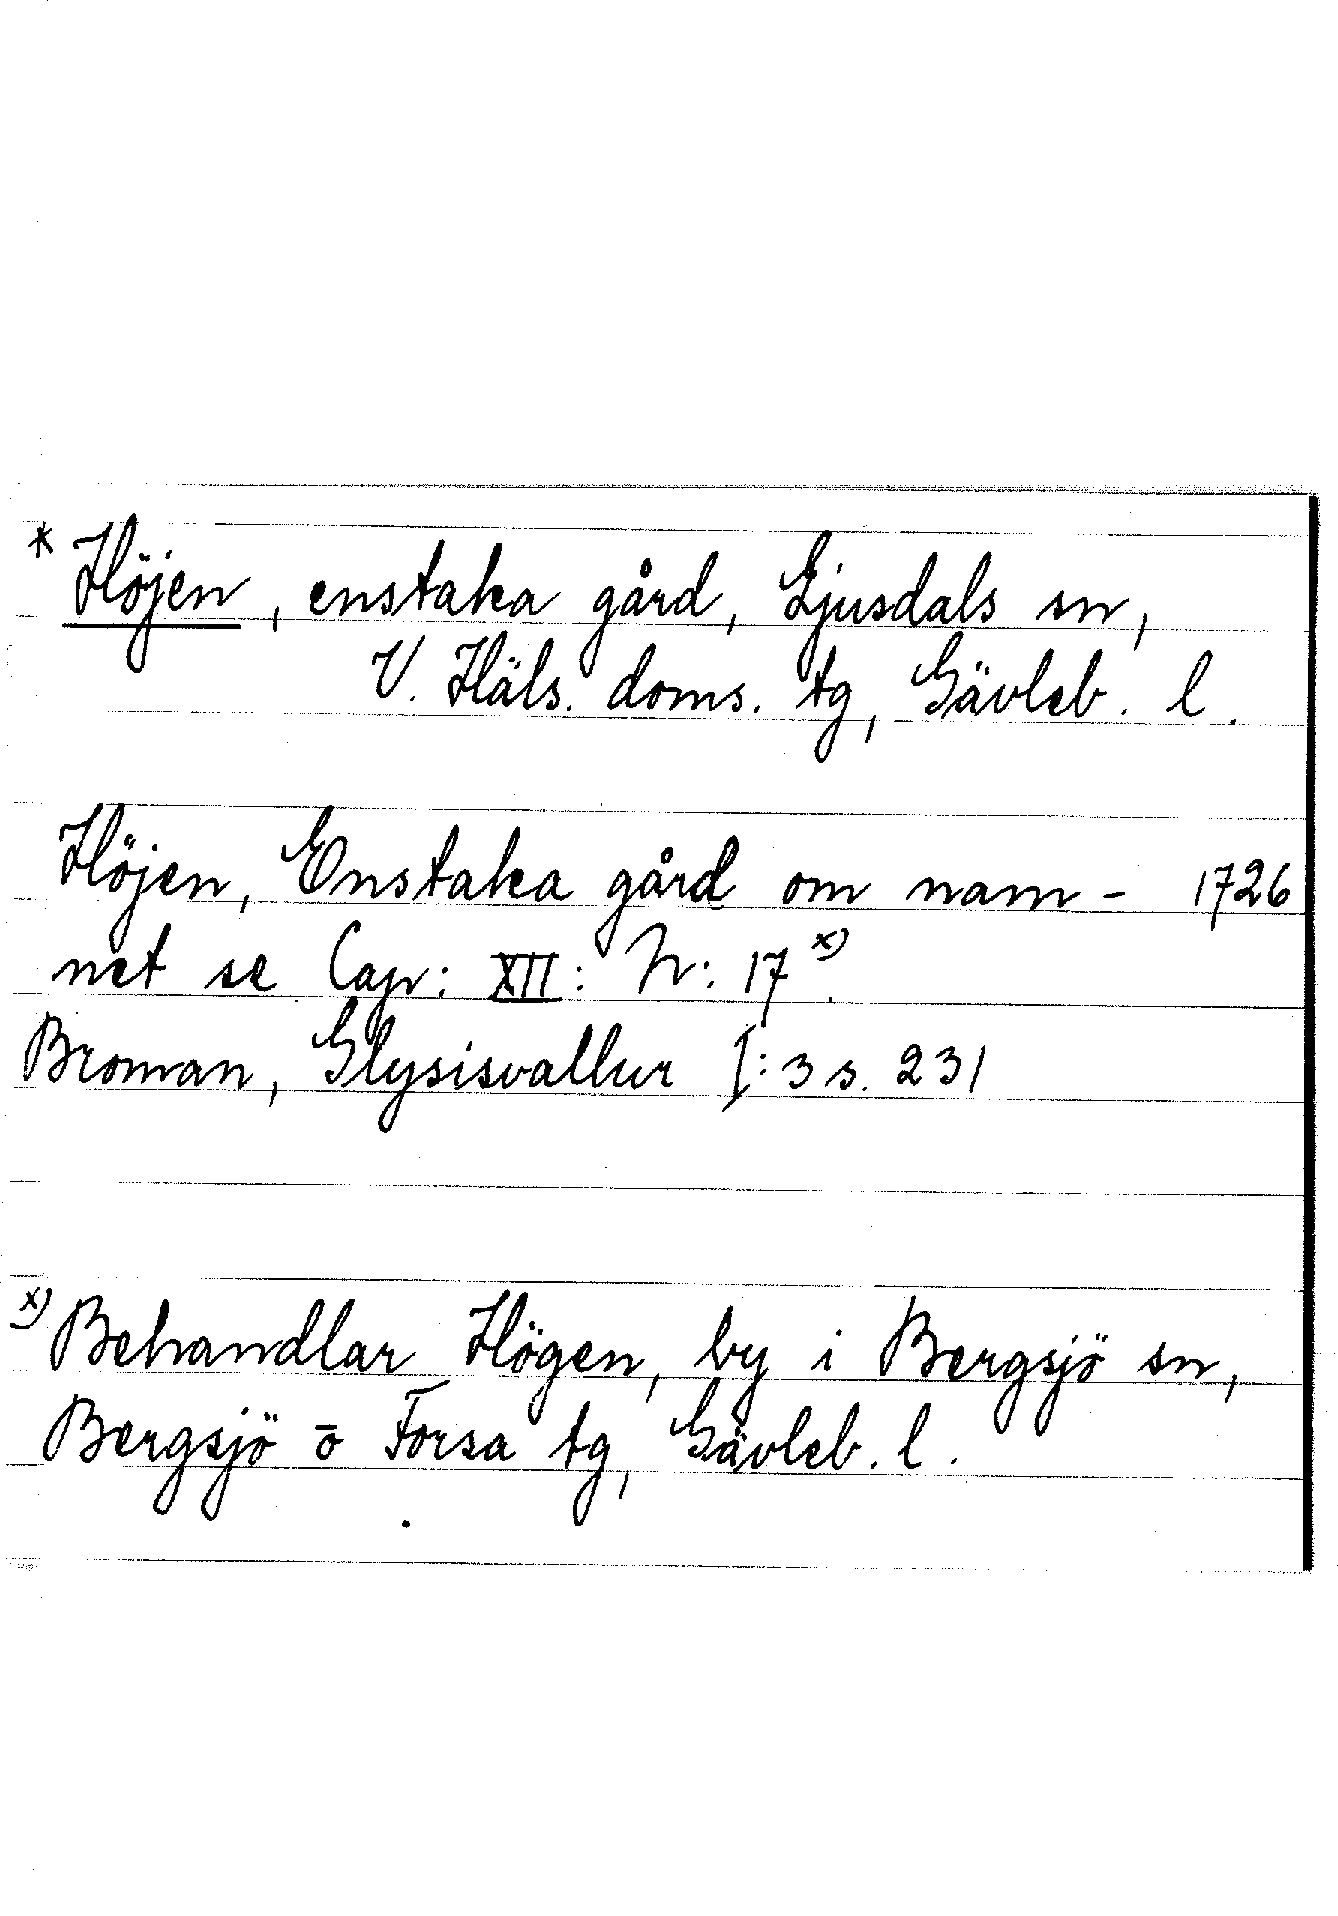 * Höjen, enstaka gård, Ljusdals sn,
V. Häls. doms. tg, Gävleb. l.
Höjen, Enstaka gård om nam- 1726
net se Cap: XII: N: 17 x).
Broman, Glysisvallur I:3 s. 231
x) Behandlar Högen, by i Bergsjö sn,
Bergsjö o Forsa tg, Gävleb. l.